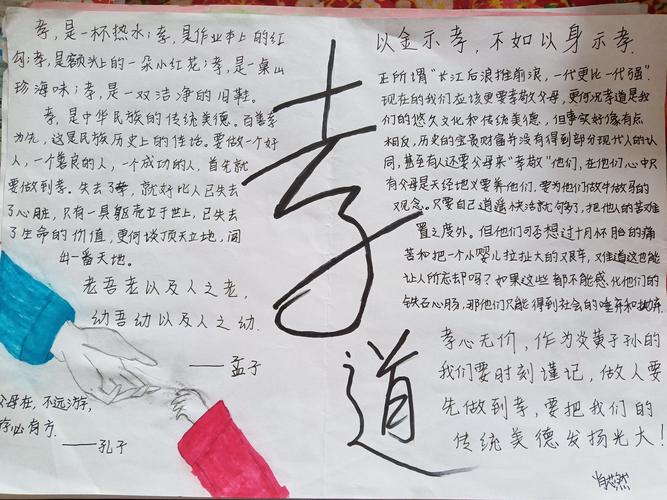 孝,是一杯热水;孝,是作业本上的红
勾;孝,是额头上的一朵小红花;孝,是一桌山
珍海味;孝,是一双洁净的旧鞋。
孝,是中华民族的传统美德。百善孝
为先,这是民族历史上的佳话。要做一个好
人,一个善良的人,一个成功的人,首先就
要做到孝。失去了孝,就好比人已失去
了心脏,只有一具躯壳立于世上,已失去
了生命的价值,更何谈顶天立地,闯
出一番天地。
老吾老以及人之老,
幼吾幼以及人之幼.
——孟子
父母在,不远游,
游必有方.
——孔子
孝
道
以金示孝,不如以身示孝.
正所谓“长江后浪推前浪,一代更比一代强”.
现在的我们应该更要孝敬父母,更何况孝道是我
们的悠久文化和传统美德,但事实好像有点
相反,历史的宝贵财富并没有得到部分现代人的认
同,甚至有人还要父母来“孝敬”他们,在他们心中只
有父母是天经地义要养他们,要为他们做牛做马的
观念。只要自己逍遥快活就够了,把他人的苦难
置之度外。但他们可否想过十月怀胎的痛
苦和把一个小婴儿拉扯大的艰辛,难道这也能
让人所忘却吗?如果这些都不能感化他们的
铁石心肠,那他们只能得到社会的唾弃和
孝心无价,作为炎黄子孙的
我们要时刻谨记,做人要
先做到孝,要把我们的
传统美德发扬光大!